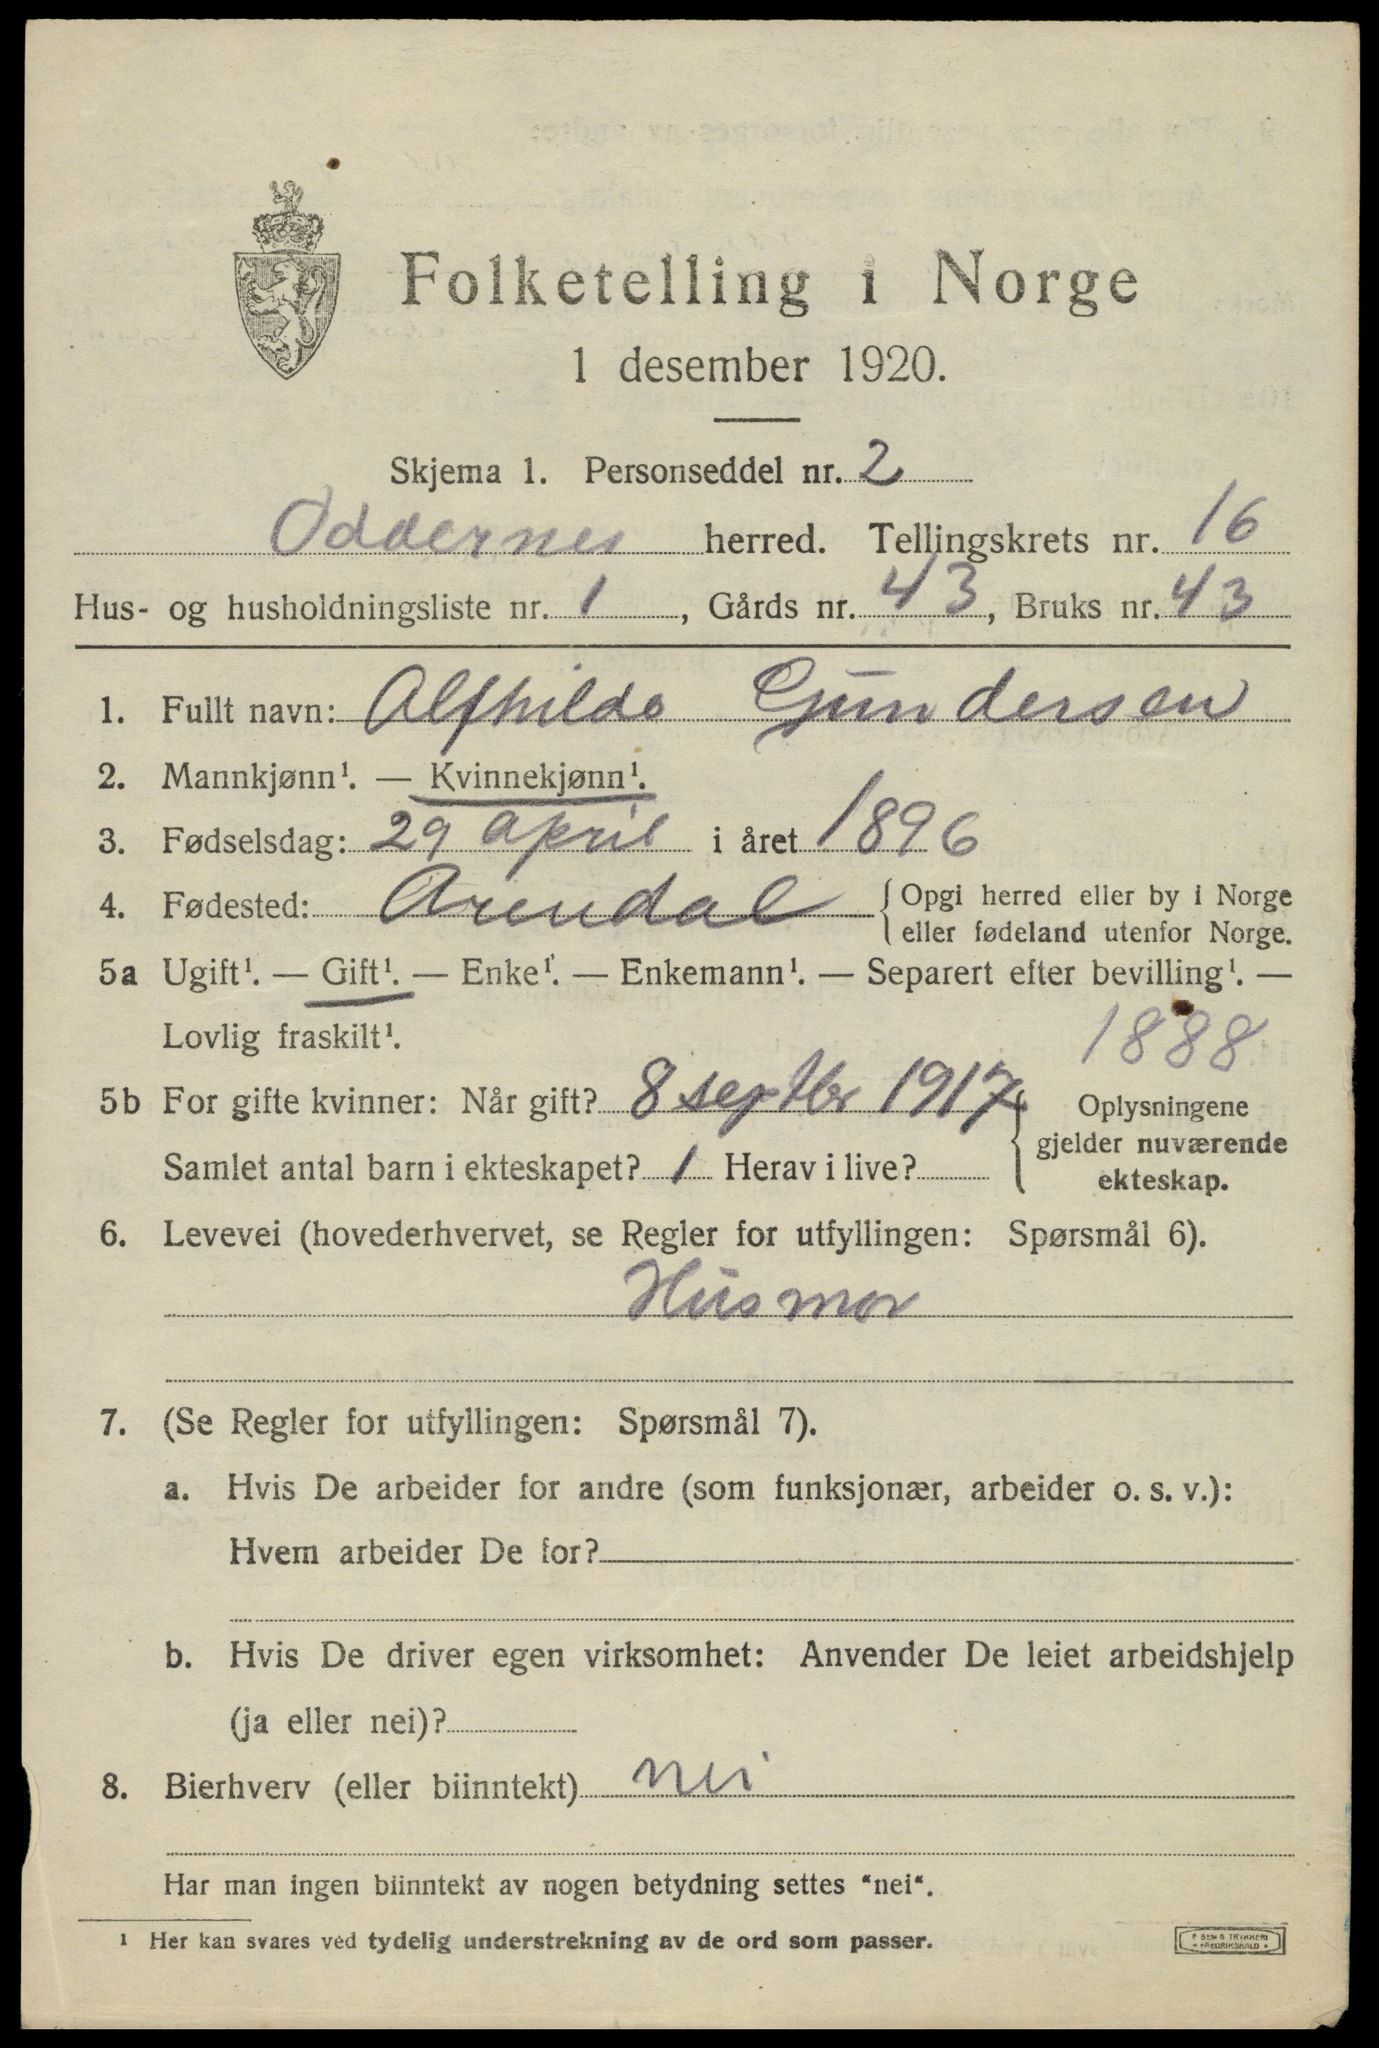 Folketelling i Norge
1 desember 1920.
Skjema 1. Personseddel nr. 2
Oddernes herred. Tellingskrets nr. 16
Hus- og husholdningsliste nr. 1, Gårds nr. 43, Bruks nr. 43
1. Fullt navn: Alfhilde Gundersen
2. Mannkjønn¹. — Kvinnekjønn¹.
3. Fødselsdag: 29 april i året 1896
4. Fødested: Arendal { Opgi herred eller by i Norge
eller fødeland utenfor Norge.
5a Ugift¹. — Gift¹. — Enke¹. — Enkemann¹. — Separert efter bevilling¹. —
Lovlig fraskilt¹.
1888
5b For gifte kvinner: Når gift? 8 septbr 1917
Samlet antal barn i ekteskapet? 1 Herav i live?
{ Oplysningene
gjelder nuværende
ekteskap.
6. Levevei (hovederhvervet, se Regler for utfyllingen: Spørsmål 6).
Husmor
7. (Se Regler for utfyllingen: Spørsmål 7).
a. Hvis De arbeider for andre (som funksjonær, arbeider o. s. v.):
Hvem arbeider De for?
b. Hvis De driver egen virksomhet: Anvender De leiet arbeidshjelp
(ja eller nei)?
8. Bierhverv (eller biinntekt) nei
Har man ingen biinntekt av nogen betydning settes "nei".
¹ Her kan svares ved tydelig understrekning av de ord som passer.
E SEM'S TRYKKERI
FREDRIKSHALD